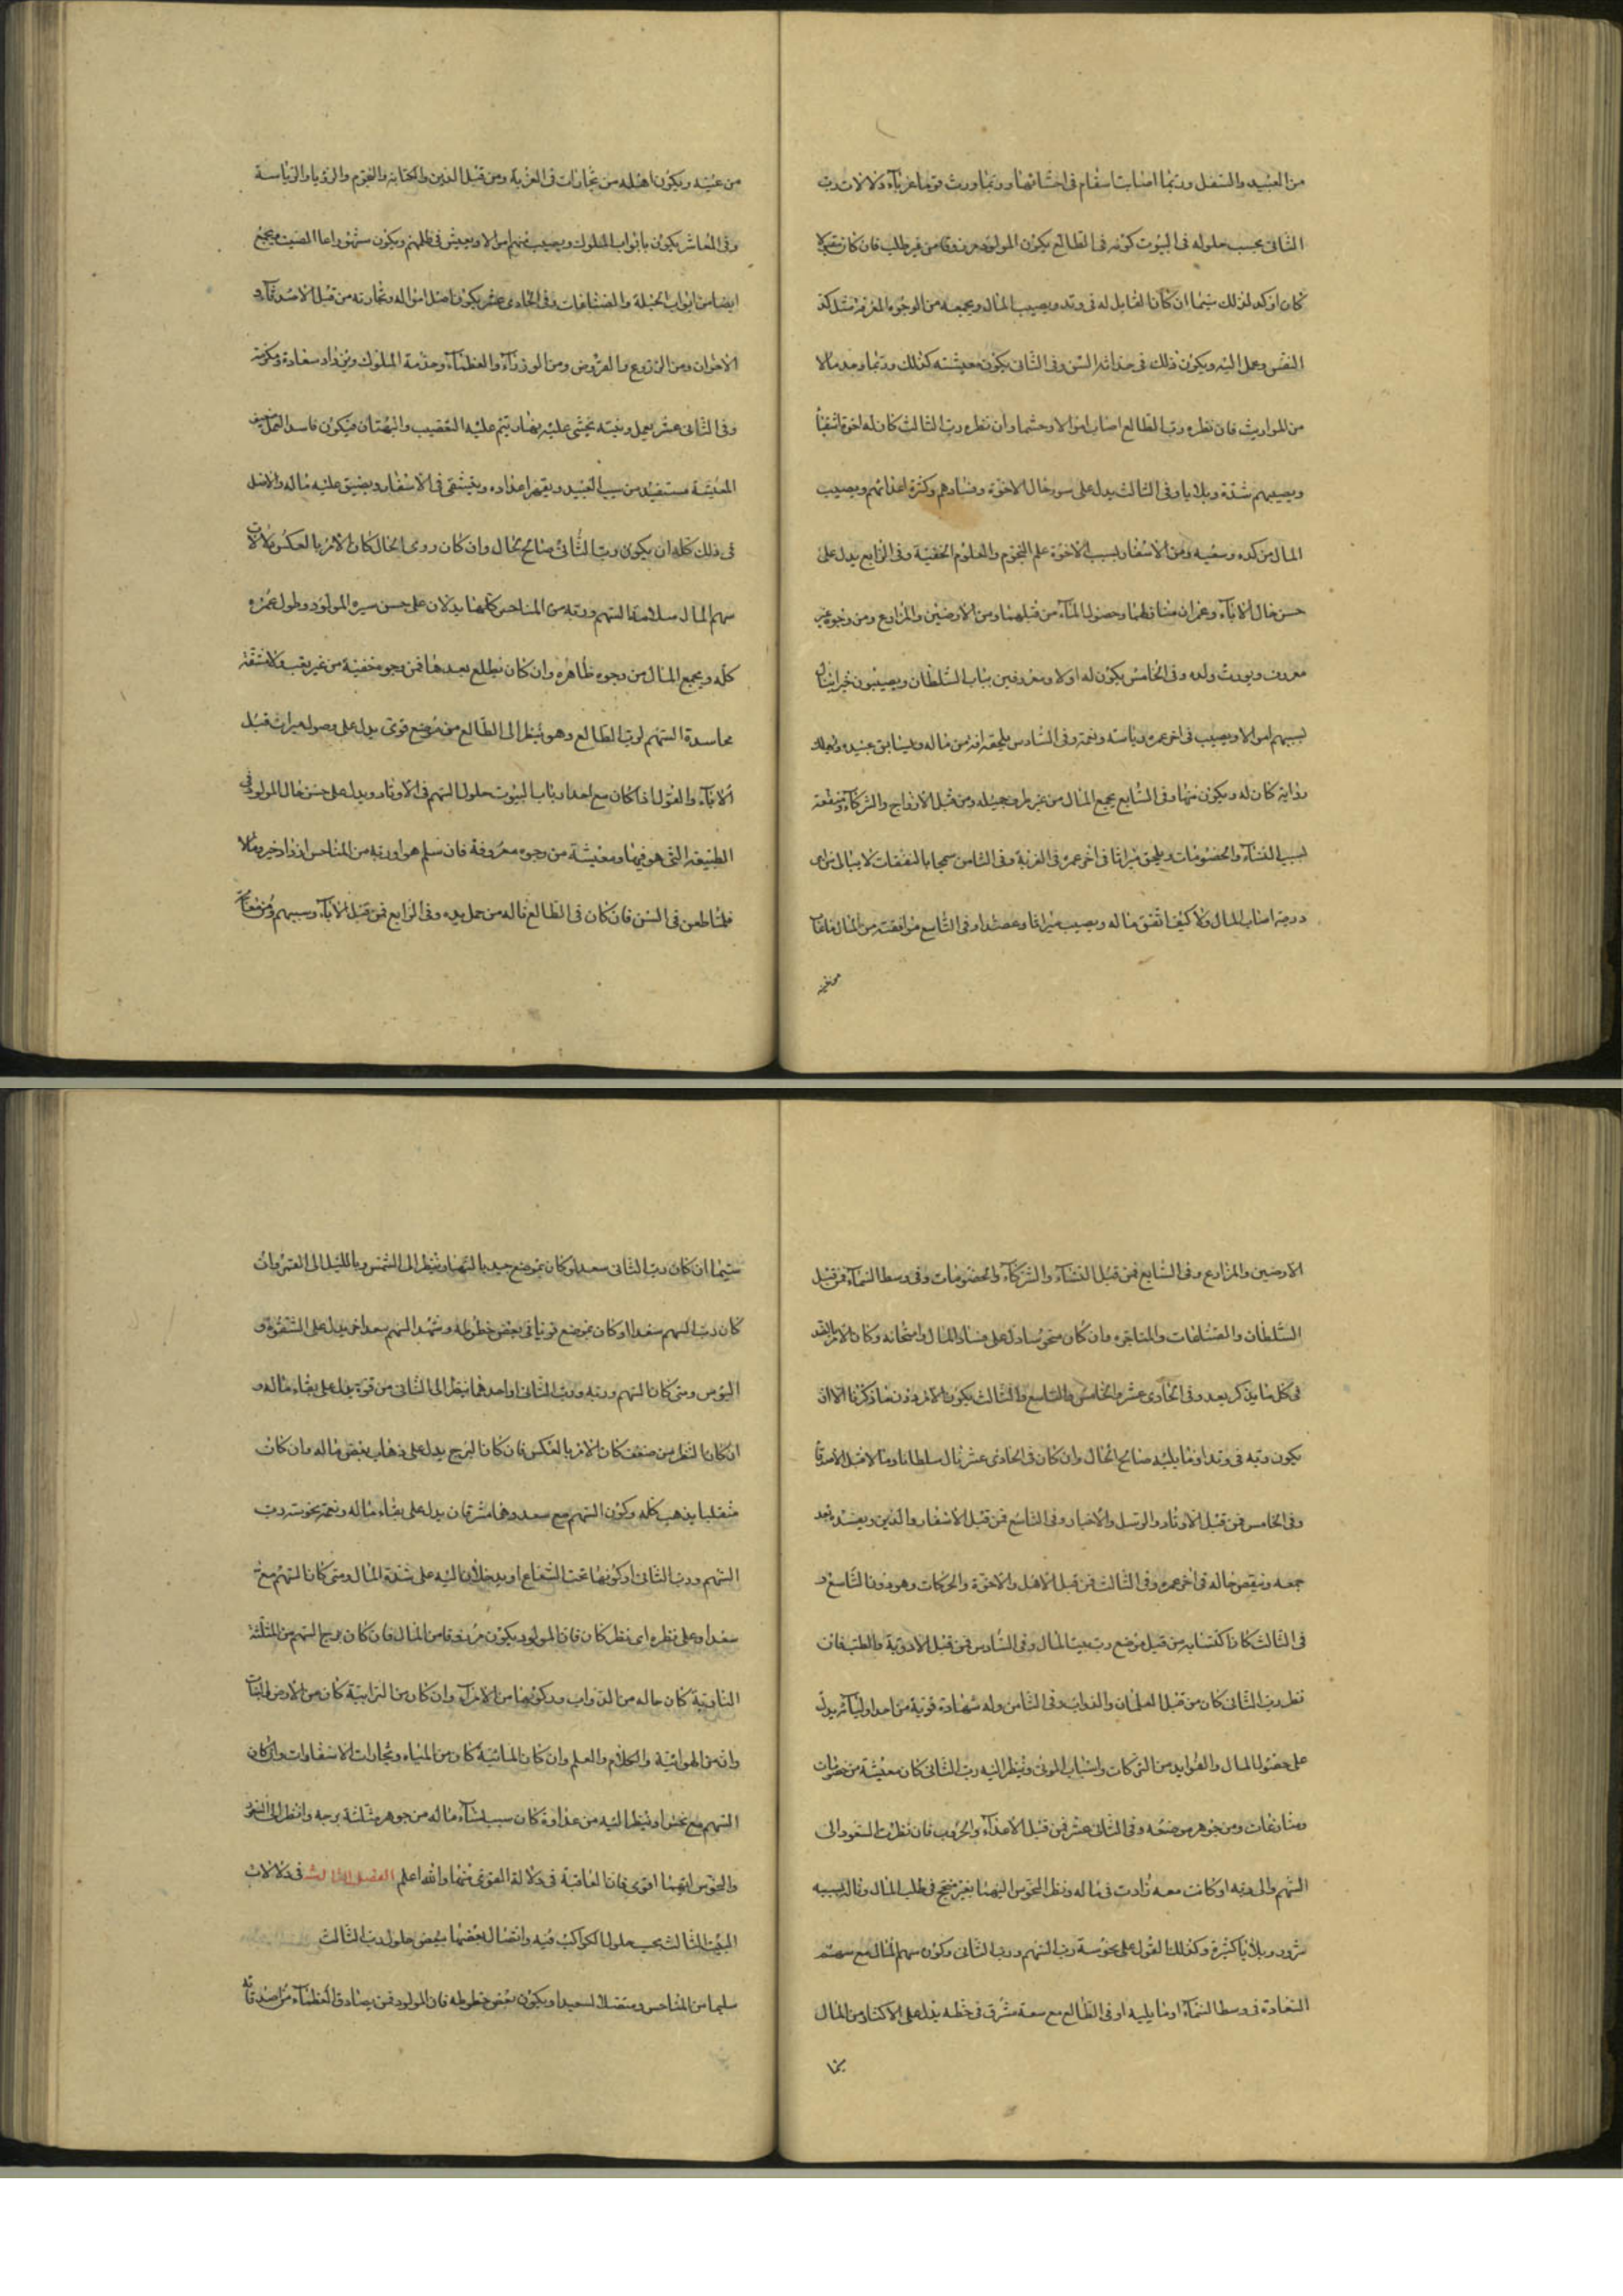 من العبيد والسفل وربما اصابت اسقام فى احشائها وربما ورث قوما غرباء دلالات رب
الثانى بحسب حلوله فى البيوت كونه فى الطالع يكون المولود مرزوقا من غير طلب فان كان مقبولا
كان اوكد لذلك سيما ان كان القابل له فى وتد ويصيب المال ويجمعه من الوجوه المعرفة مثل كد
النفس وعمل اليد ويكون ذلك فى حداثة السن وفى الثانى يكون معيشته كذلك وربما وجد مالا
من المواريث فان نظره رب الطالع اصاب اموالا وحشما وان نظره رب الثالث كان له اخوة اشقياء
ويصيبهم شدة وبلايا وفى الثالث يدل على سوء حال الاخوة وفسادهم وكثرة اعدائهم ويصيب
المال من كده وسعيه ومن الاسفار بسبب الاخوة علم النجوم والعلوم الخفية وفى الرابع يدل على
حسن حال الاباء وعمران منازلهما وحصول المال من قبلهما ومن الارضين والمزارع ومن وجوه غير
معروف ويورث ولده وفى الخامس يكون له اولاد معروفين بباب السلطان ويصيبون خيرا ينال
بسببهم اموالا ويصيب فى اخر عمره رياسة ونعمة وفى السادس يلحقه افة من ماله ويسابق عبيده ويهلك
دوابه كان له ويكون منها وفى السابع يجمع المال من غير طرف حيله ومن قبل الازواج والشركاء ومنفعة
بسبب النساء والخصومات ويلحق ميراثا فى اخر عمره فى الغربة وفى الثامن سمحا بالنفقات لا يبالى من اى
درجة اصاب المال ولا كيف انفق ماله ويصيب ميراثا وعضدا وفى التاسع موافقته من المال غائبا
من عينه ويكون اهله من تجارات فى الغربة ومن قبل الدين والكتابة والنجوم والرؤيا والرياسة
وفى العاشر يكون بابواب الملوك ويصيب منهم اموالا ويعيش فى ظلهم ويكون مشهورا عالى الصيت ويجمع
ايضا من ابواب الحيلة والصناعات وفى الحادى عشر يكون اصل امواله وتجارته من قبل الاصدقاء و
الاخوان ومن الزروع والفروض ومن الوزراء والعظماء وخدمة الملوك ويزداد سعادة ومكرمة
وفى الثانى عشر يعمل وبنيته يخشى عليه بهتان يتم عليه الغضب والبهتان فيكون فاسد العمل ضيق
المعيشة مستفيد من سبب العبيد ويقهر اعداده ويشقى فى الاسفار ويضيق عليه ماله والاصل
فى ذلك كله ان يكون رب الثانى صالح الحال وان كان روى الحال كان الامر بالعكس دلالات
سهم المال سلامة السهم وربه من المناحس كلهما يدلان على حسن سيره المولود وطول عمره
كله ويجمع المال من وجوه ظاهره وان كان يطلع بعدها فمن وجوه خفية من غير تعب ولا مشقة
محاسدة السهم لرب الطالع وهو ينظر الى الطالع من موضع قوى يدل على وصول ميراث قبل
الاباء والقول اذا كان مع احد ارباب البيوت حلول السهم فى الاوتاد ويدل على حسن حال المولود فى
الطبيعة التى هو فيها ومعيشة من وجوه معروفة فان سلم هو او ربه من المناحس ازداد خير ومالا
فلما طعن فى السن فان كان فى الطالع ناله من حمل يديه وفى الرابع فمن قبل الاباء وسببهم ومن منافع
الارضين والمزارع وفى السابع فمن قبل النساء والشركاء والخصومات وفى وسط السماء فمن قبل
السلطان والصناعات والمتاجره وان كان منحوسا دل على فساد المال وامتحانه وكان الامر بالضد
فى كل ما يذكر بعد وفى الحادى عشر والخامس والتاسع والثالث يكون الامر دون ما ذكرنا الا ان
يكون ربه فى وتد او ما يليه صالح الحال وان كان فى الحادى عشر نال سلطانا ومالا قبل الاصدقا
وفى الخامس فمن قبل الاولاد والرسل والاخبار وفى التاسع فمن قبل الاسفار والدين ويفسد بعد
جمعه وينقص حاله فى اخر عمره وفى الثالث فمن قبل الاهل والاخوة والحركات وهو دون التاسع و
فى الثالث كان اكتسابه من قبل موضع رب بيت المال وفى السادس فمن قبل الادوية والطبيقات
نظر رب الثانى كان من قبل الغلمان والدواب وفى الثامن وله شهادة قوية من احد اوليائه يدل
على حصول المال والفوايد من التركات واسباب الموتى وينظر اليه رب الثانى كان معيشة من خصومات
ومنازعات ومن جوهر موضعه وفى الثانى عشر فمن قبل الاعداء والحروب فان نظرت السعود الى
السهم والى ربه او كانت معه زادت فى ماله ونظر النحوس اليهما بغير منجح فى طلب المال وناله بسببه
شرور وبلايا كثيرة وكذلك القول على نحوسة رب السهم ورب الثانى وكون سهم المال مع سهم
السعادة فى وسط السماء او ما يليه او فى الطالع مع سعد مشرق فى حظه يدل على الاكثار من المال
سيما
سيما ان كان رب الثانى سعدا وكان بموضع جيد بالنهار ينظر الى الشمس وبالليل الى القمر وان
كان رب السهم سعدا وكان بموضع قوى فى بعض حظوظه وشهد السهم بعد اخر يدل على الشقوة و
البؤس ومتى كان السهم وربه ورب الثانى او احدهما ينظر الى الثانى من قوة يدل على بقاء ماله و
ان كان النظر من ضعف كان الامر بالعكس فان كان البرج يدل على ذهاب بعض ماله وان كان
منقلبا يذهب كله وكون السهم مع سعد وهما مشرقان يدل على بقاء ماله ونعمته نحوسة رب
السهم ورب الثانى او كونهما تحت الشعاع او يدخلان اليه على شدة المال ومتى كان السهم مع
سعد او على نظره اى نظر كان فان المولود يكون مرزوقا من المال فان كان برج السهم من المثلثة
النارية كان حاله من الدواب وركوبها من الامراء وان كان من الترابية كان من الارض والنبات
وان من الهوائية والكلام والعلم وان كان المائية كان من المياه وتجارات الاسفار وان كان
السهم مع نحس او ينظر اليه من عداوة كان سبب انشاء ماله من جوهر مثلثة برجه وانظر الى السعود
والنحوس ايهما اقوى فان العاقبة فى دلالة القوى منهما والله اعلم الفصل الثالث فى دلالات
البيت الثالث بحسب حلول الكواكب فيه واتصال بعضها ببعض حلول رب الثالث
سليما من المناحس ومتصلا لسعيدا ويكون ببعض حظوظه فان المولود فمن يصادق العظماء من اصدقائه